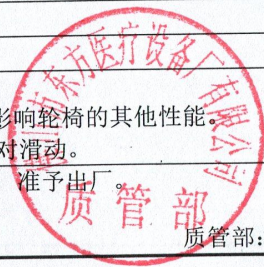 影响轮椅的其他性能。
对滑动。
准予出厂。
质管部:
山市东方医疗设备厂有限公司
质管部